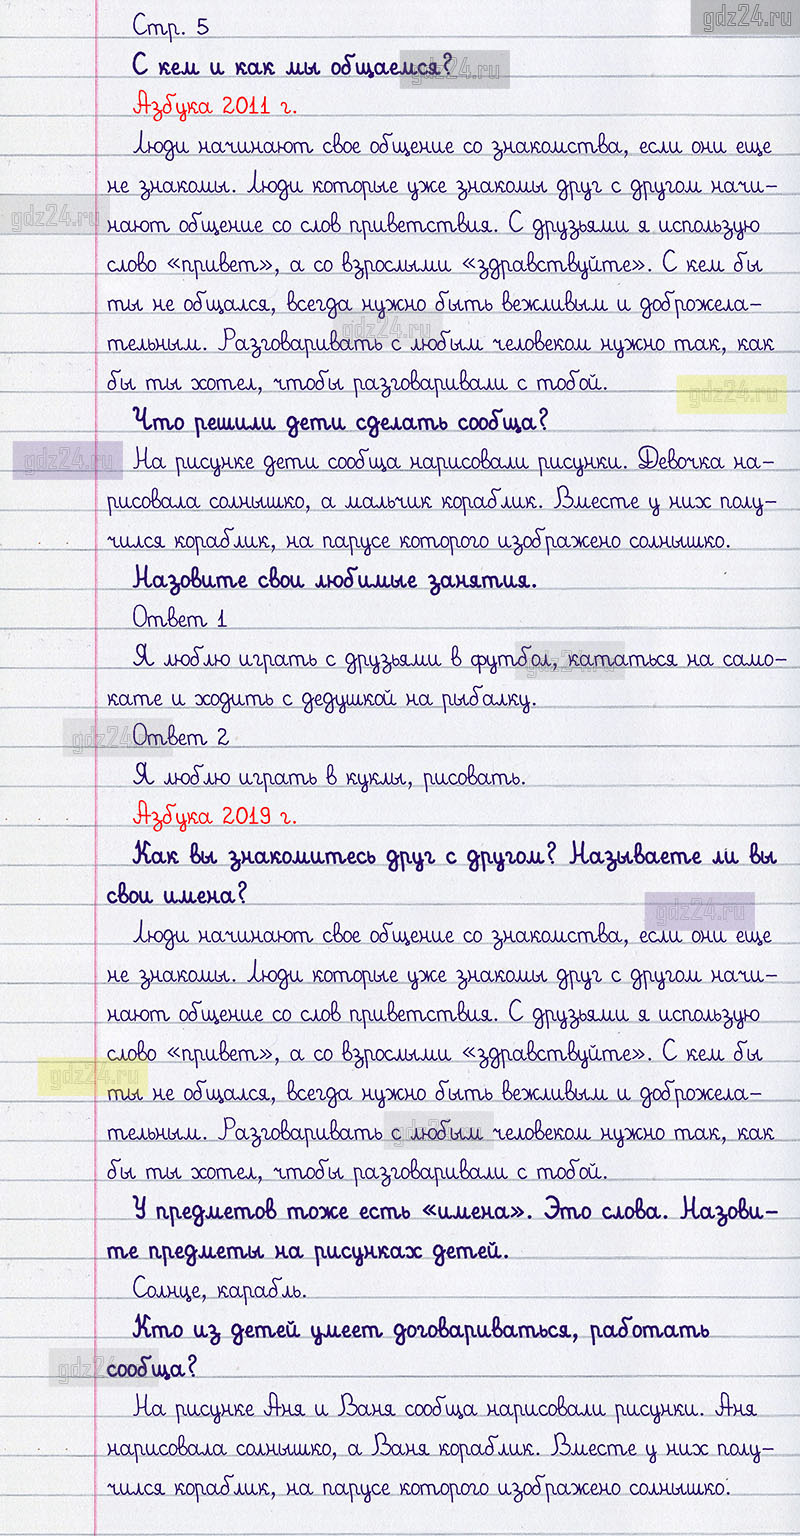 Стр. 5
gdz24.ru
С кем и как мы общаемся?
gdz24.ru
Азбука 2011 г.
Люди начинают свое общение со знакомства, если они еще
не знакомы. Люди которые уже знакомы друг с другом начи-
gdz24.ru
нают общение со слов приветствия. С друзьями я использую
слово «привет», а со взрослыми «здравствуйте». С кем бы
ты не общался, всегда нужно быть вежливым и доброжела-
gdz24.ru
тельным. Разговаривать с любым человеком нужно так, как
бы ты хотел, чтобы разговаривали с тобой.
gdz24.ru
Что решили дети сделать сообща?
gdz24.ru
На рисунке дети сообща нарисовали рисунки. Девочка на-
рисовала солнышко, а мальчик кораблик. Вместе у них полу-
чился кораблик, на парусе которого изображено солнышко.
Назовите свои любимые занятия.
Ответ 1
Я люблю играть с друзьями в футбол, кататься на само-
gdz24.ru
кате и ходить с дедушкой на рыбалку.
Ответ 2
gdz24.ru
Я люблю играть в куклы, рисовать.
Азбука 2019 г.
Как вы знакомитесь друг с другом? Называете ли вы
свои имена?
gdz24.ru
Люди начинают свое общение со знакомства, если они еще
не знакомы. Люди которые уже знакомы друг с другом начи-
нают общение со слов приветствия. С друзьями я использую
слово «привет», а со взрослыми «здравствуйте». С кем бы
gdz24.ru
ты не общался, всегда нужно быть вежливым и доброжела-
тельным. Разговаривать с любым человеком нужно так, как
gdz24.ru
бы ты хотел, чтобы разговаривали с тобой.
У предметов тоже есть «имена». Это слова. Назови-
те предметы на рисунках детей.
Солнце, карабль.
Кто из детей умеет договариваться, работать
сообща?
gdz24.ru
На рисунке Аня и Ваня сообща нарисовали рисунки. Аня
нарисовала солнышко, а Ваня кораблик. Вместе у них полу-
чился кораблик, на парусе которого изображено солнышко.